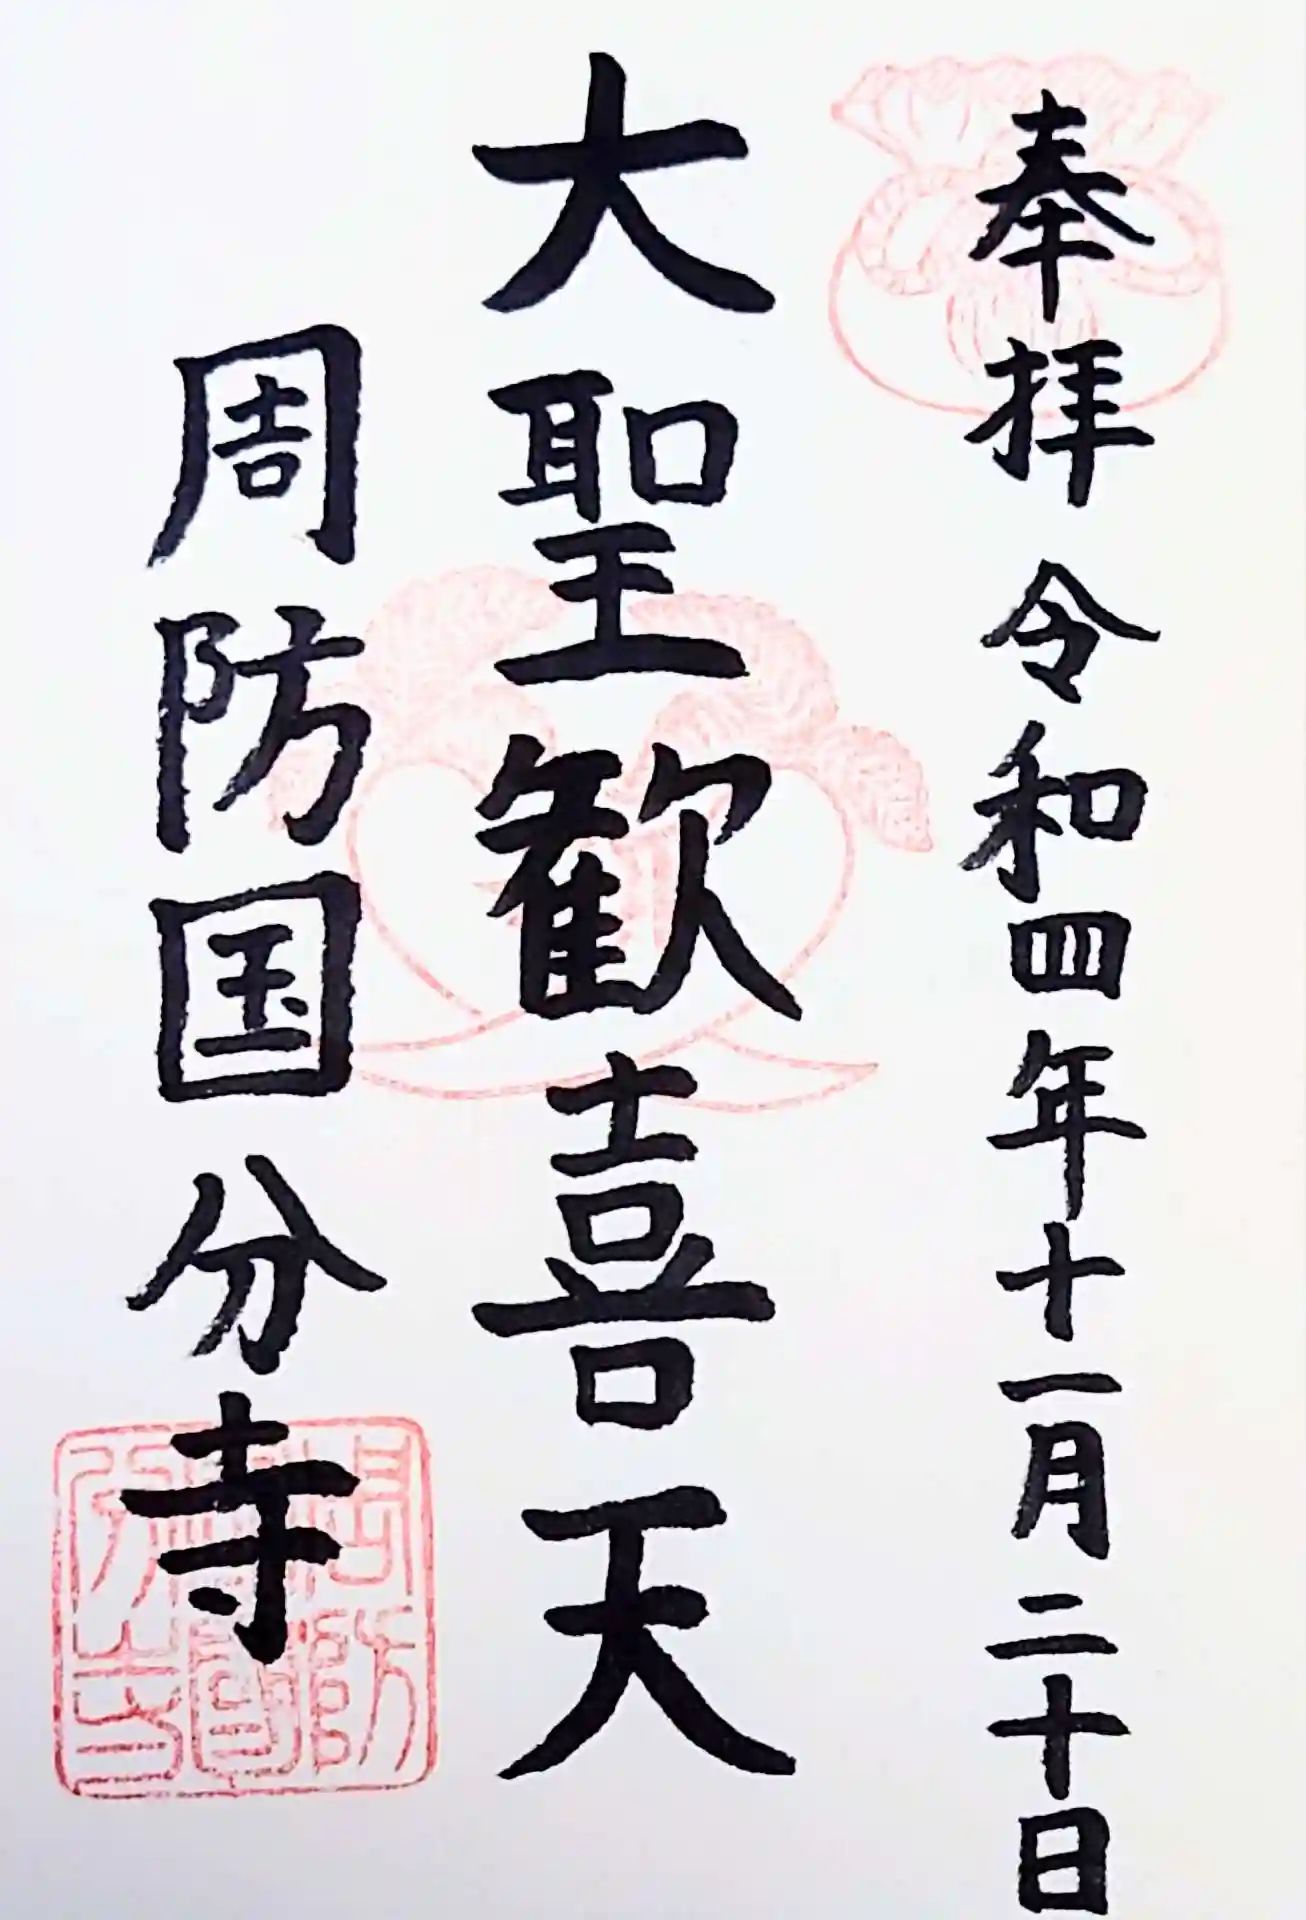 奉拝 令和四年十一月二十日
大聖歓喜天
周防国分寺
周防國分寺